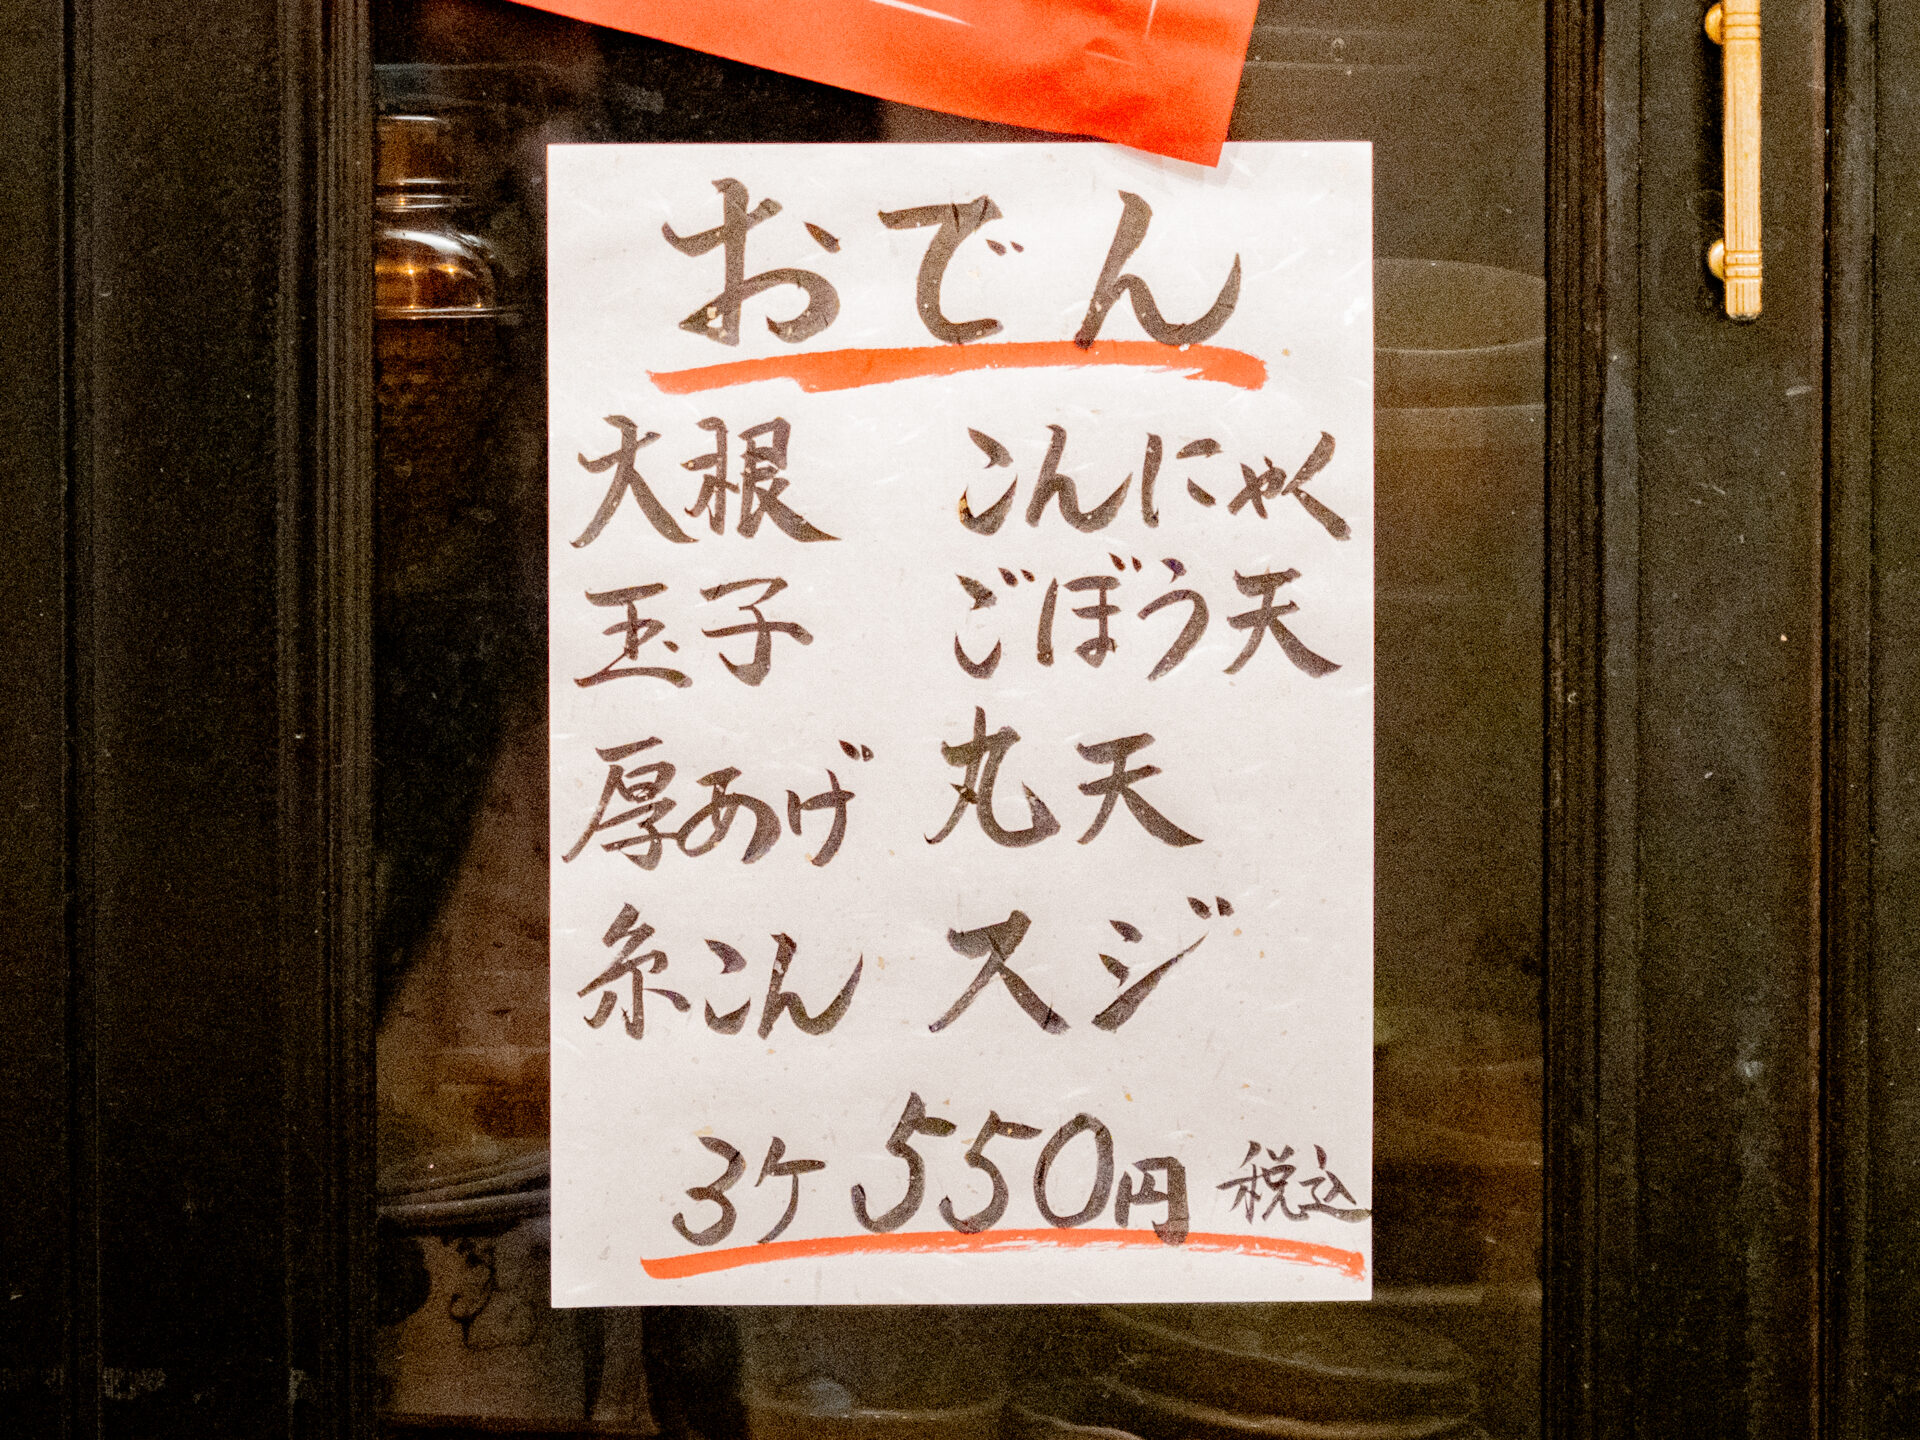 おでん
大根 こんにゃく
玉子 ごぼう天
厚あげ 丸天
糸こん スジ
3ケ 550円 税込